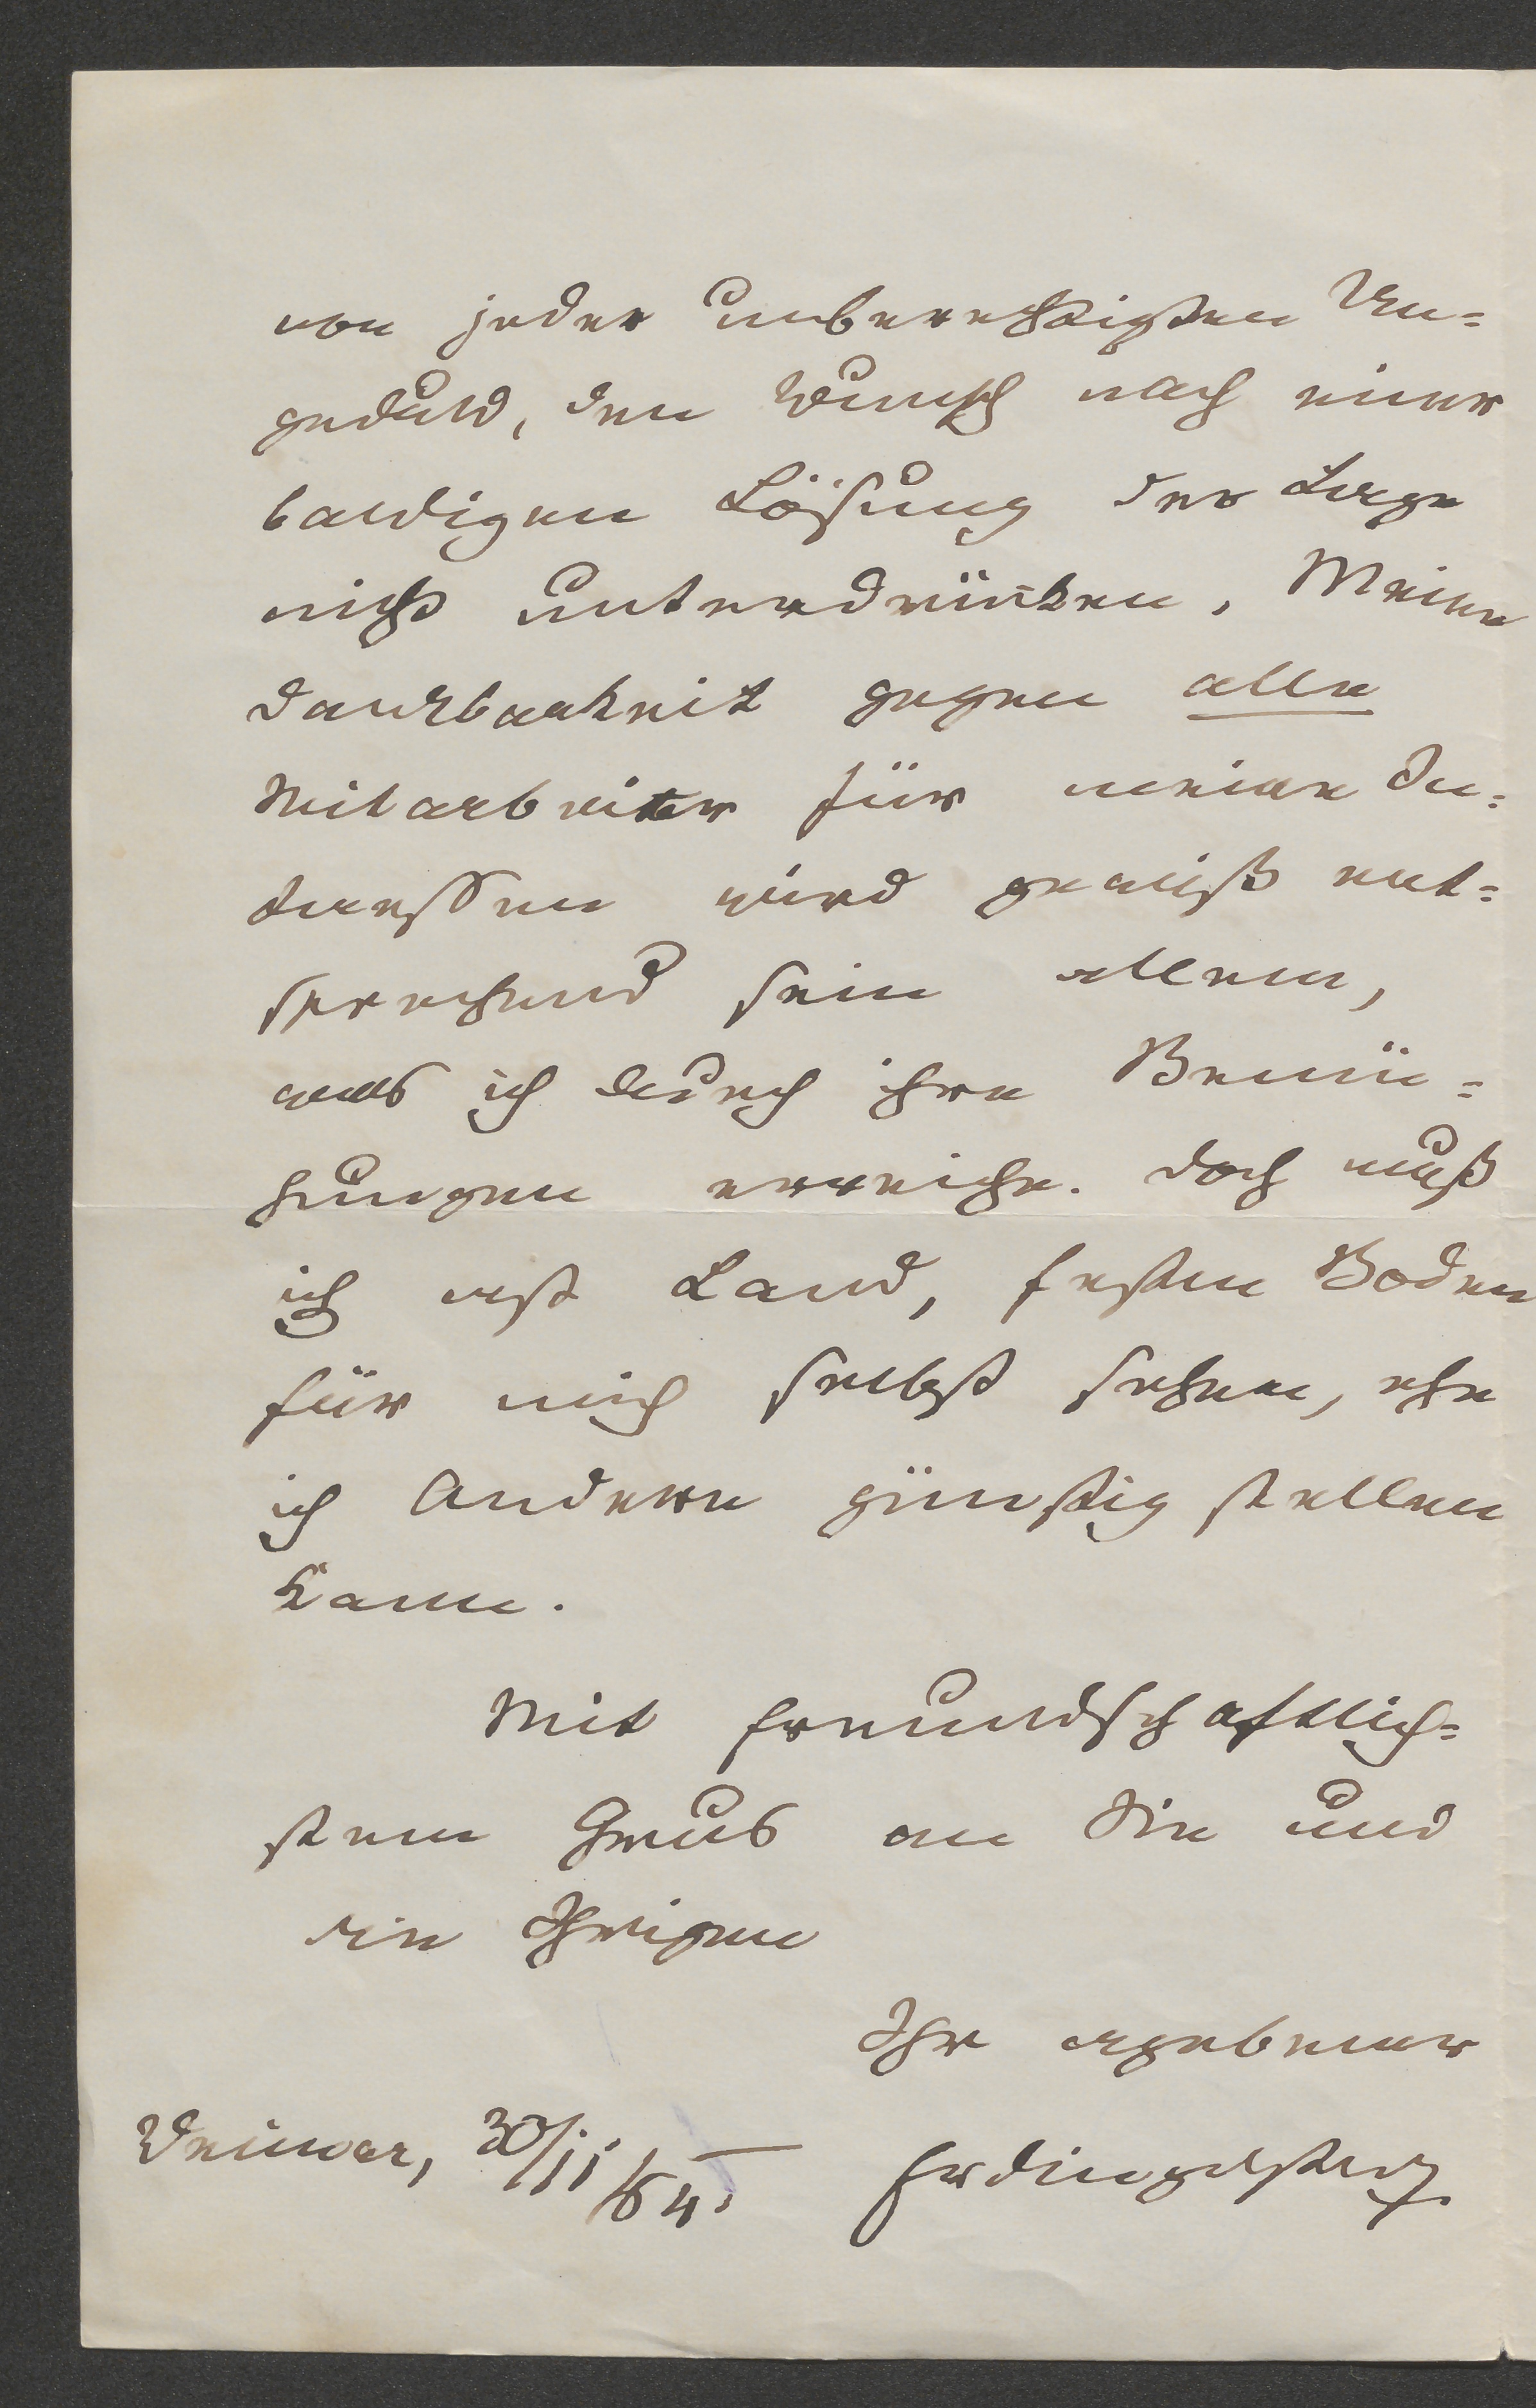 von jeder unberechtigten Un=
geduld, den Wunsch nach einer
baldigen Lösung der Lage
nicht unterdrücken. Meine
Dankbarkeit gegen alle
Mitarbeiter für meine In=
teressen wird gewiß ent=
sprechend sein allem,
was ich durch ihre Bemü=
hungen erreiche. Doch muß
ich erst Land, festen Boden
für mich selbst sehen, ehe
ich Andere günstig stellen
kann.
Mit freundschaftlich=
stem Gruß an Sie und
die Ihrigen
Ihr ergebener
Weimar, 30/11/64. FrDingelstedt